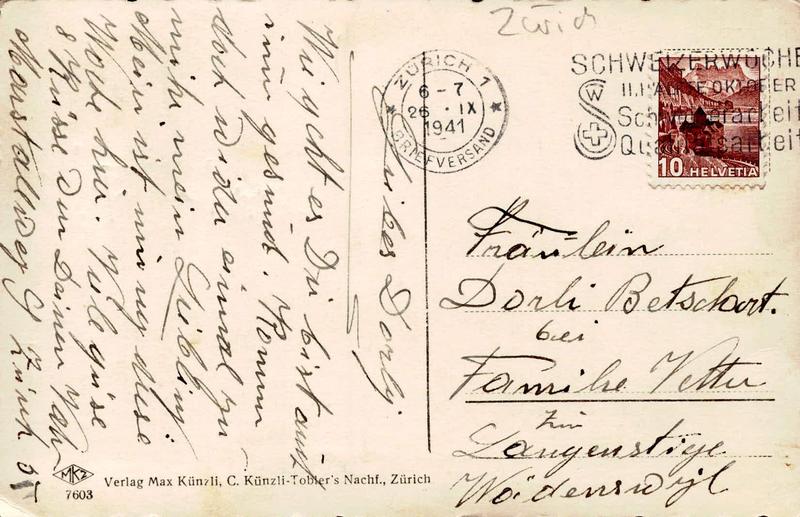 Zürich
ZÜRICH 1
6-7
26. IX
1941
BRIEFVERSAND
SCHWEIZERWOCHE
II. HÄLFTE OKTOBER
Schweizerarbeit
Qualitätsarbeit
10 HELVETIA
Liebes Dorly.
Wie geht es Du bist auf
immer gesund. Komm
doch wider einmal zu
mir mein Liebling
Mein ist mir
Woche hir. Viele grüse
8 Küsse Dein
Zürich
Fräulein
Dorli Betschart.
bei
Familie Vetter
Zin
Langenstige
Wädenswyl
MKZ
7603
Verlag Max Künzli, C. Künzli-Tobler's Nachf., Zürich